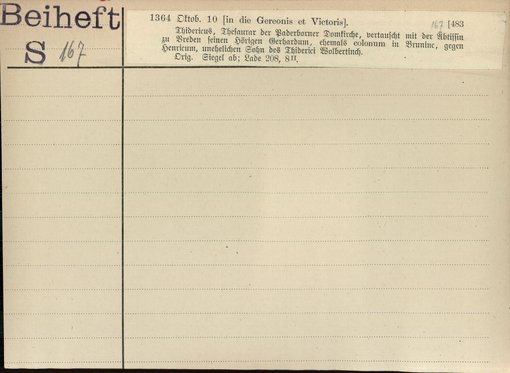 Beiheft
S 167
1364 Oktob. 10 [in die Gereonis et Victoris]. 167 [483
Thidericus, Thesaurar der Paderborner Domkirche, vertauscht mit der Äbtissin
zu Vreden seinen Hörigen Gerhardum, ehemals colonum in Brunine, gegen
Henricum, unehelichen Sohn des Thiderici Wolbertinch.
Orig. Siegel ab; Lade 208, 8 II.